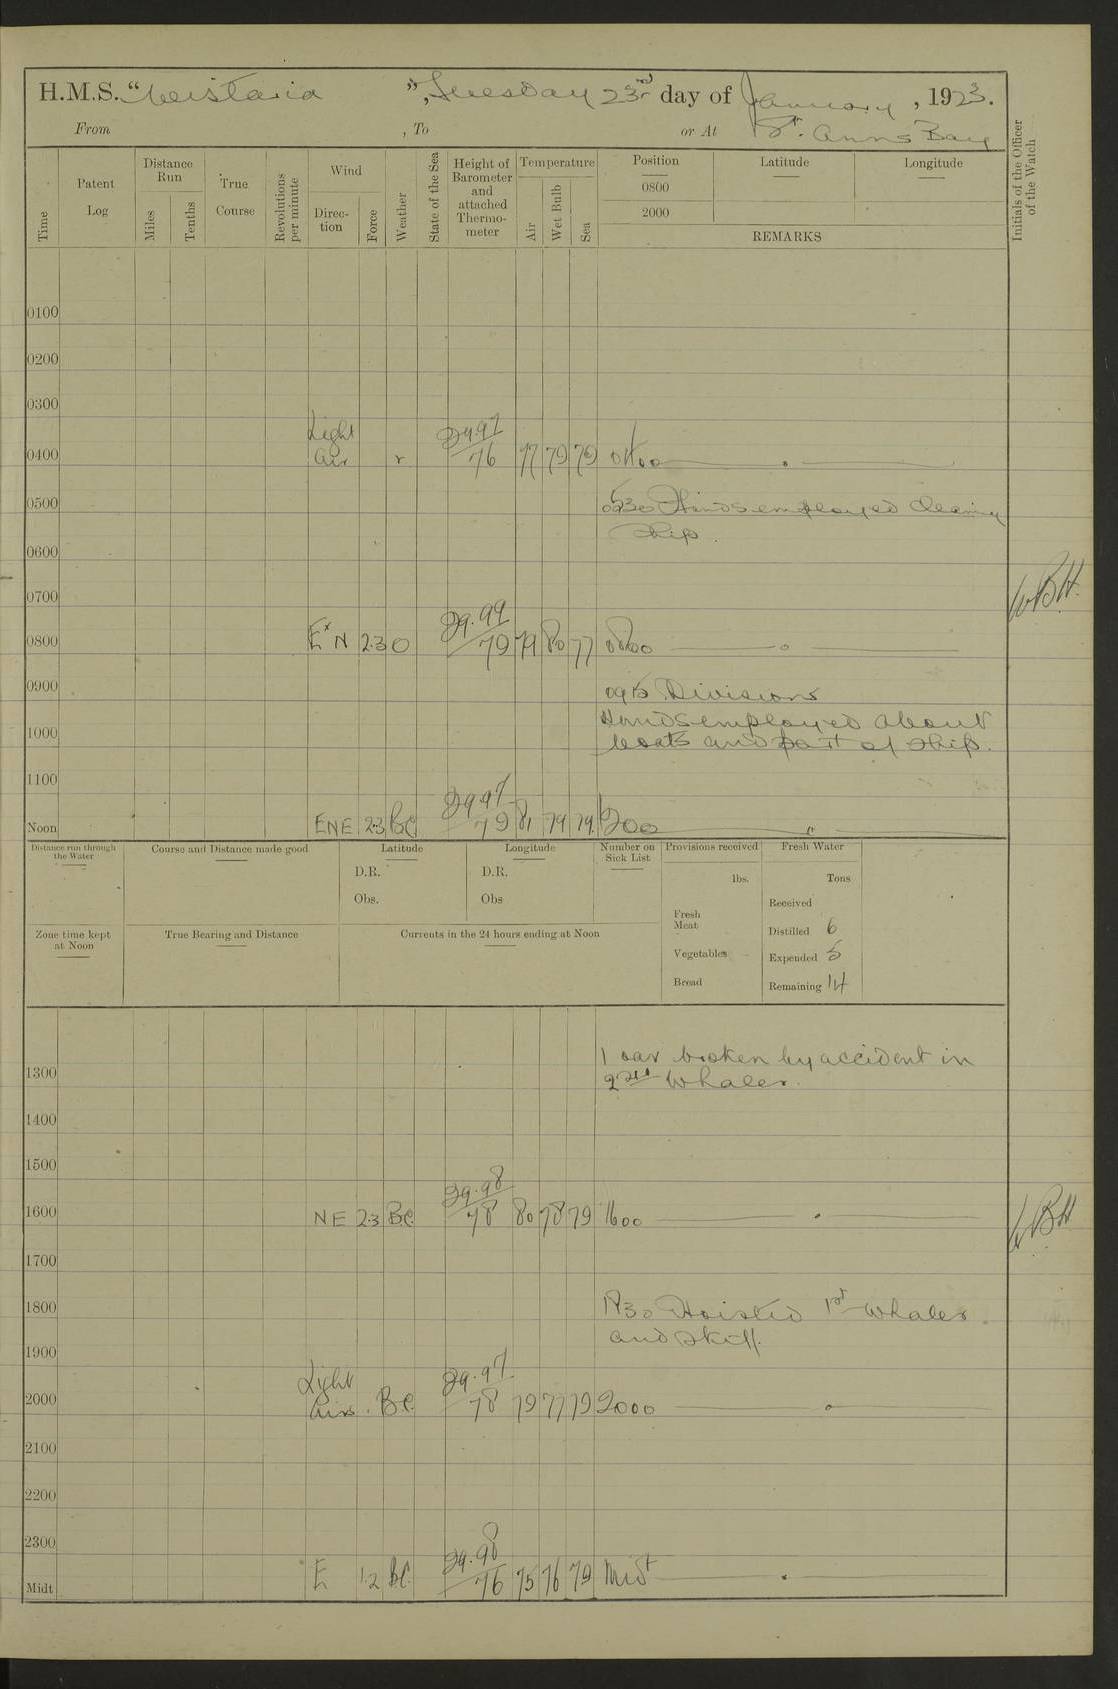 H.M.S. "Wistaria", Tuesday 23rd day of January, 1923.
From , To or At St. Anns Bay
Time
Patent Log
Distance Run
Miles
Tenths
True Course
Revolutions per minute
Wind
Direc-tion
Force
Weather
State of the Sea
Height of Barometer and attached Thermo-meter
Temperature
Air
Wet Bulb
Sea
Position
0800
2000
Latitude
Longitude
REMARKS
Initials of the Officer of the Watch
0100
0200
0300
Light 29.97
0400 Air r 76 77 79 79 0400
0500 0530 Hands employed cleaning
ship.
0600
0700 WBH.
29.99
0800 ExN 2.3 O 79 79 80 77 0800
0900 0915 Divisions
Hands employed about
1000 boats and part of ship.
1100
29.97
Noon ENE 2.3 BC 79 81 79 79 1200
Distance run through the Water
Course and Distance made good
Latitude
D.R.
Obs.
Longitude
D.R.
Obs
Number on Sick List
Provisions received
lbs.
Fresh Meat
Vegetables
Bread
Fresh Water
Tons
Received
Distilled 6
Expended 5
Remaining 14
Zone time kept at Noon
True Bearing and Distance
Currents in the 24 hours ending at Noon
1 oar broken by accident in
1300 2nd Whaler.
1400
1500
29.98
1600 NE 2.3 BC 78 80 78 79 1600
WBH
1700
1800 1730 Hoisted 1st Whaler
and skiff.
1900
Light 29.97
2000 airs BC 78 79 77 79 2000
2100
2200
2300
29.98
Midt E 1.2 BC 76 75 76 79 Midt